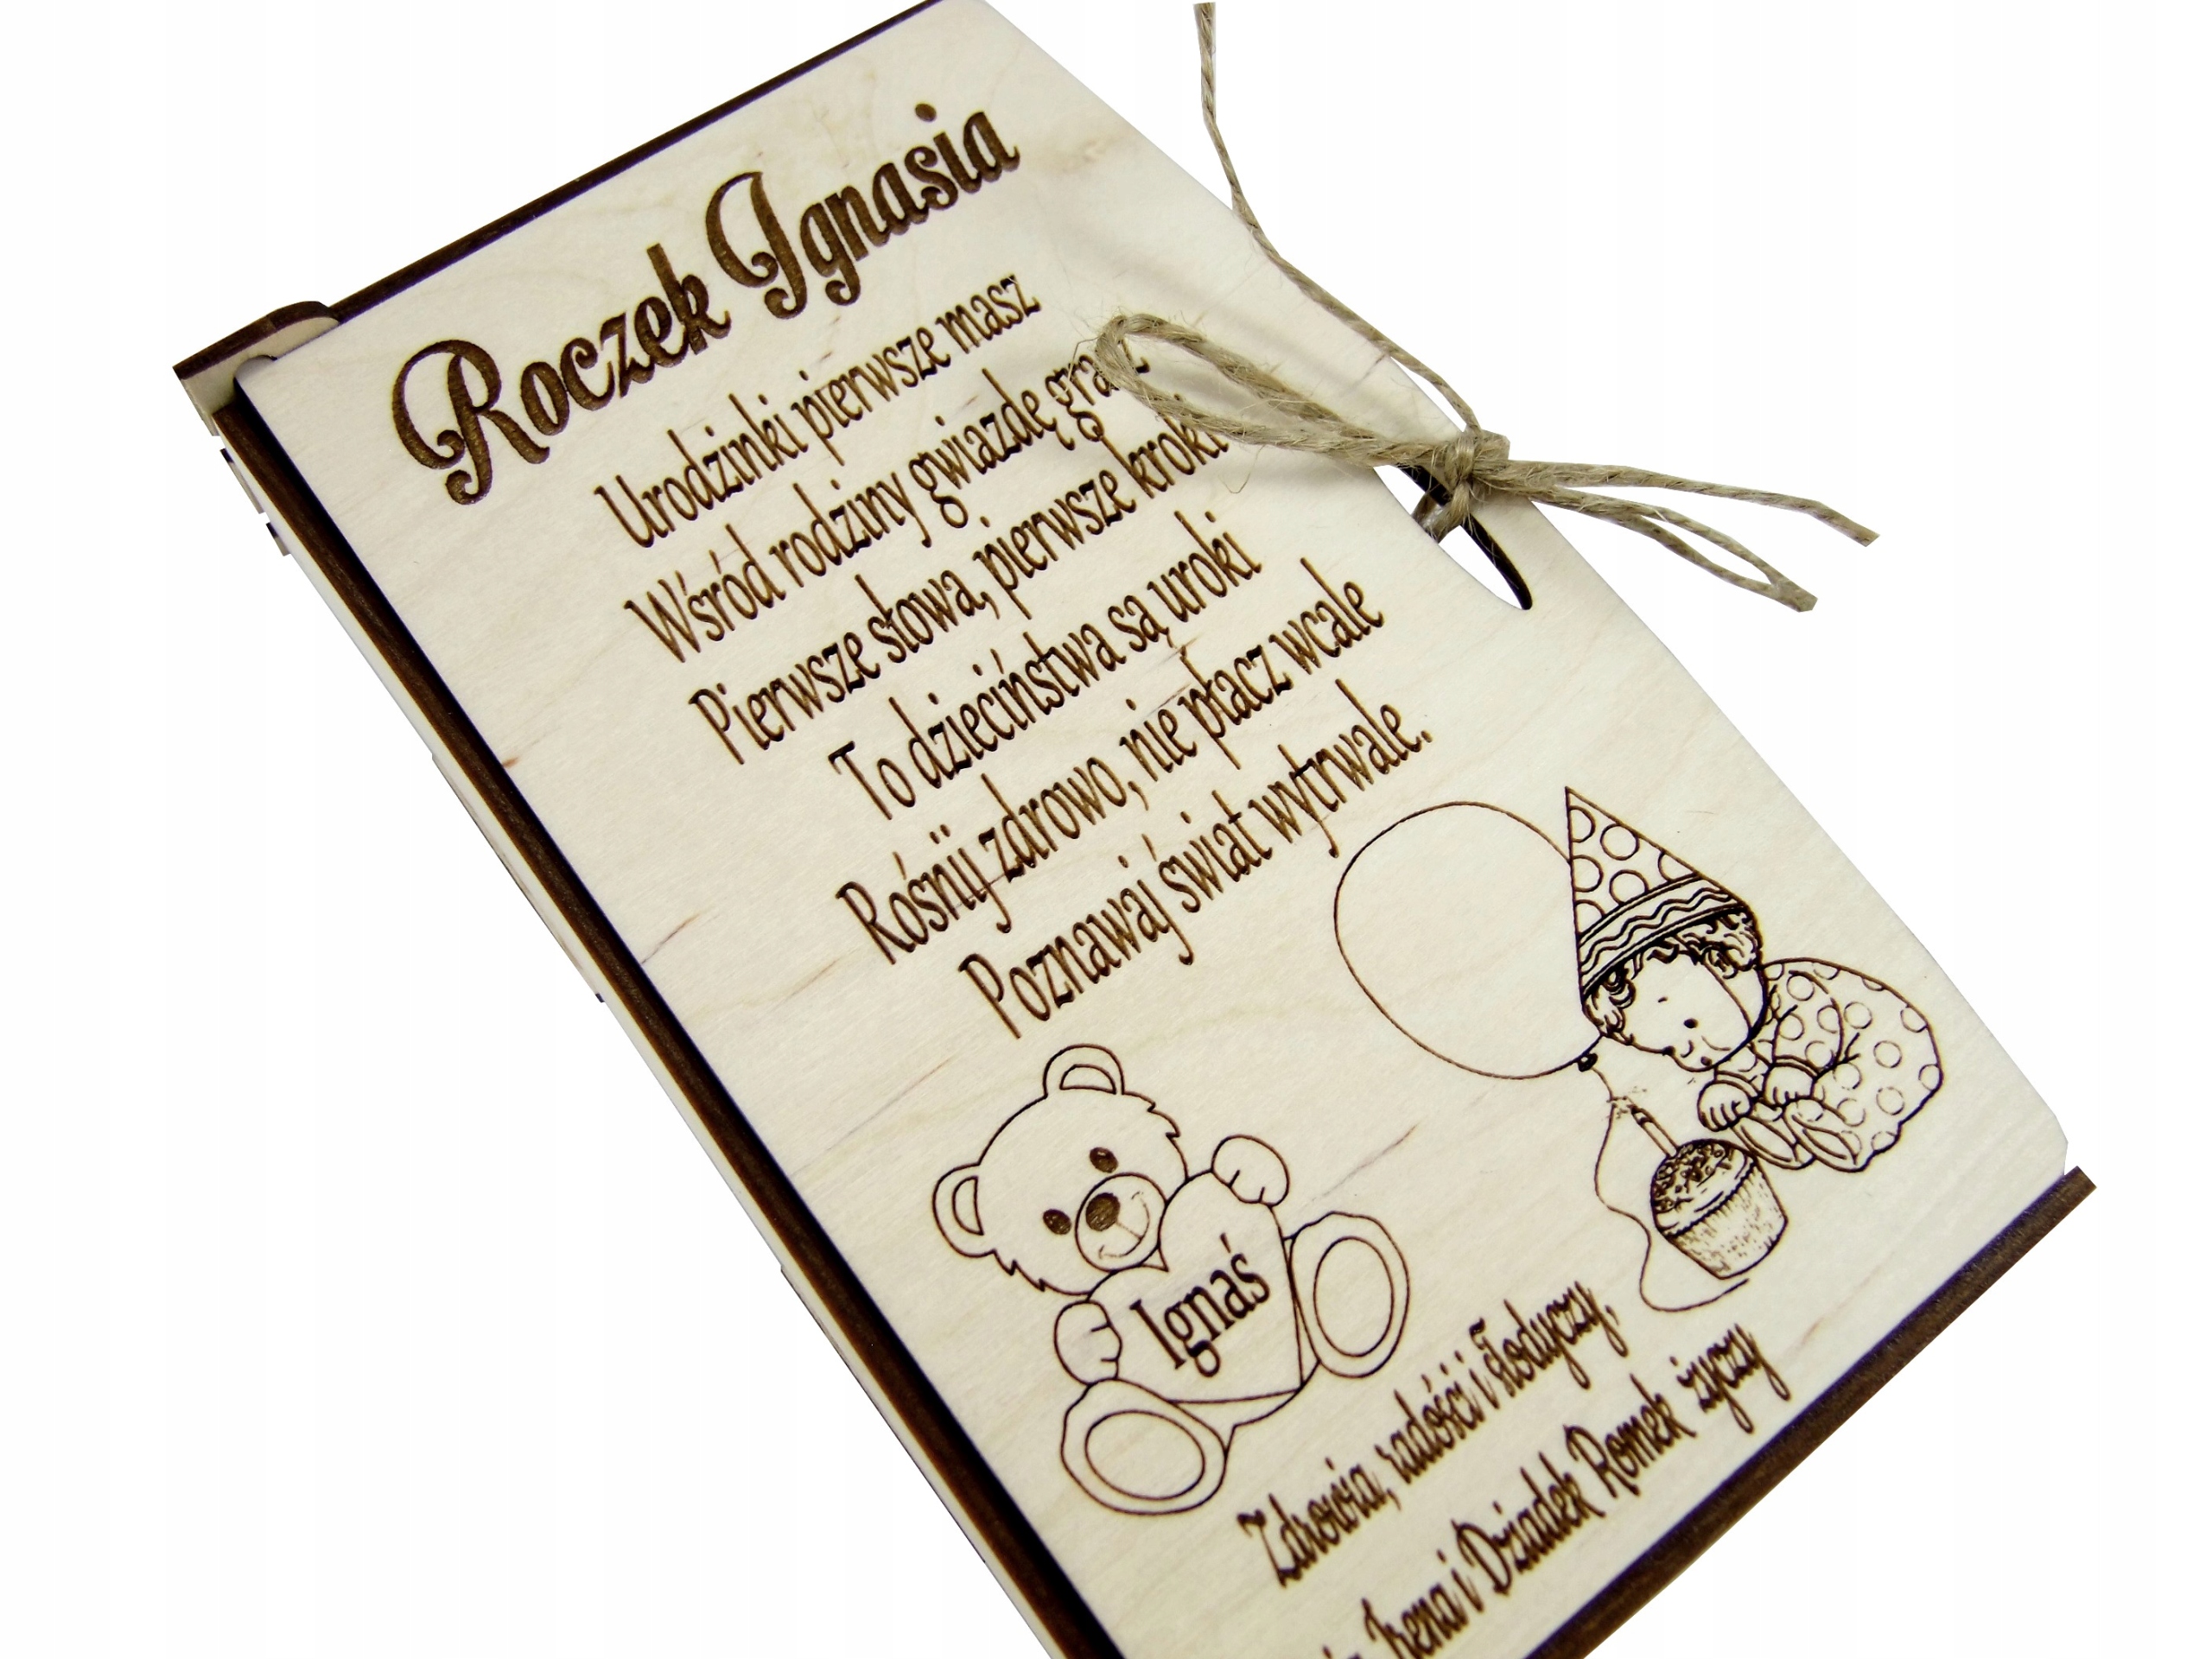 Roczek Ignasia
Urodzinki pierwsze masz
Wśród rodziny gwiazdę grasz
Pierwsze słowa, pierwsze kroki
To dzieciństwa są uroki
Rośnij zdrowo, nie płacz wcale
Poznawaj świat wytrwale.
Ignaś
Zdrowia, radości i słodyczy,
Irena i Dziadek Romek życzy